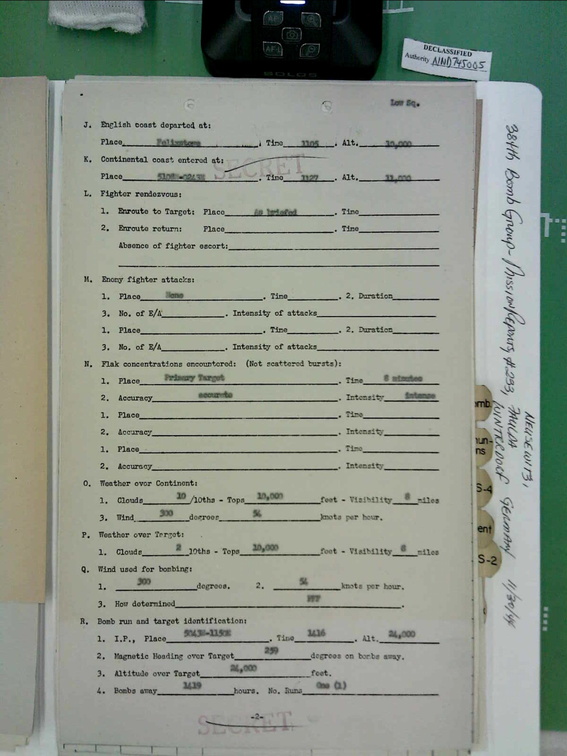 DECLASSIFIED
Authority NND745005
Low Sq.
J. English coast departed at:
Place Felixstowe, Time 1105, Alt. 10,000
K. Continental coast entered at:
SECRET
Place 5108N-0243E, Time 1127, Alt. 11,000
L. Fighter rendezvous:
1. Enroute to Target: Place As briefed, Time
2. Enroute return: Place . Time
Absence of fighter escort:
M. Enemy fighter attacks:
1. Place None . Time . 2. Duration
3. No. of E/A . Intensity of attacks
1. Place . Time . 2. Duration
3. No. of E/A . Intensity of attacks
N. Flak concentrations encountered: (Not scattered bursts):
1. Place Primary Target . Time 8 minutes
2. Accuracy accurate . Intensity intense
1. Place . Time
2. Accuracy . Intensity
1. Place . Time
2. Accuracy . Intensity
O. Weather over Continent:
1. Clouds 10 /10ths - Tops 10,000 feet - Visibility 8 miles
3. Wind 300 degrees 54 knots per hour.
P. Weather over Target:
1. Clouds 2 10ths - Tops 10,000 feet - Visibility 8 miles
Q. Wind used for bombing:
1. 300 degrees. 2. 54 knots per hour.
3. How determined .
R. Bomb run and target identification:
1. I.P., Place . Time 1416 . Alt. 24,000
2. Magnetic Heading over Target 259 degrees on bombs away.
3. Altitude over Target 24,000 feet.
4. Bombs away 1419 hours. No. Runs One (1)
-2-
SECRET
384th Bomb Group - Mission Reports, #233,
GERMANY 11/30/44
S-4
S-2